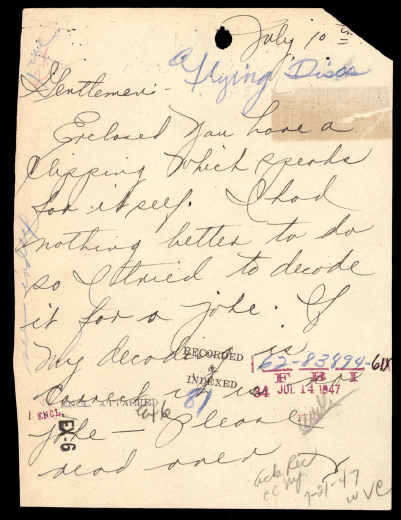 July 10
Flying Discs
Gentlemen: -
Enclosed you have a
clipping which speaks
for itself. I had
nothing better to do
so I tried to decode
it for a joke. If
my decoding is
correct it is no
joke — Please
read over
RECORDED
&
INDEXED
81
62-83894-61X
F B I
34 JUL 14 1947
1 ENCL.
ENCL. ATTACHED
EX-6
7-21-47
WVC